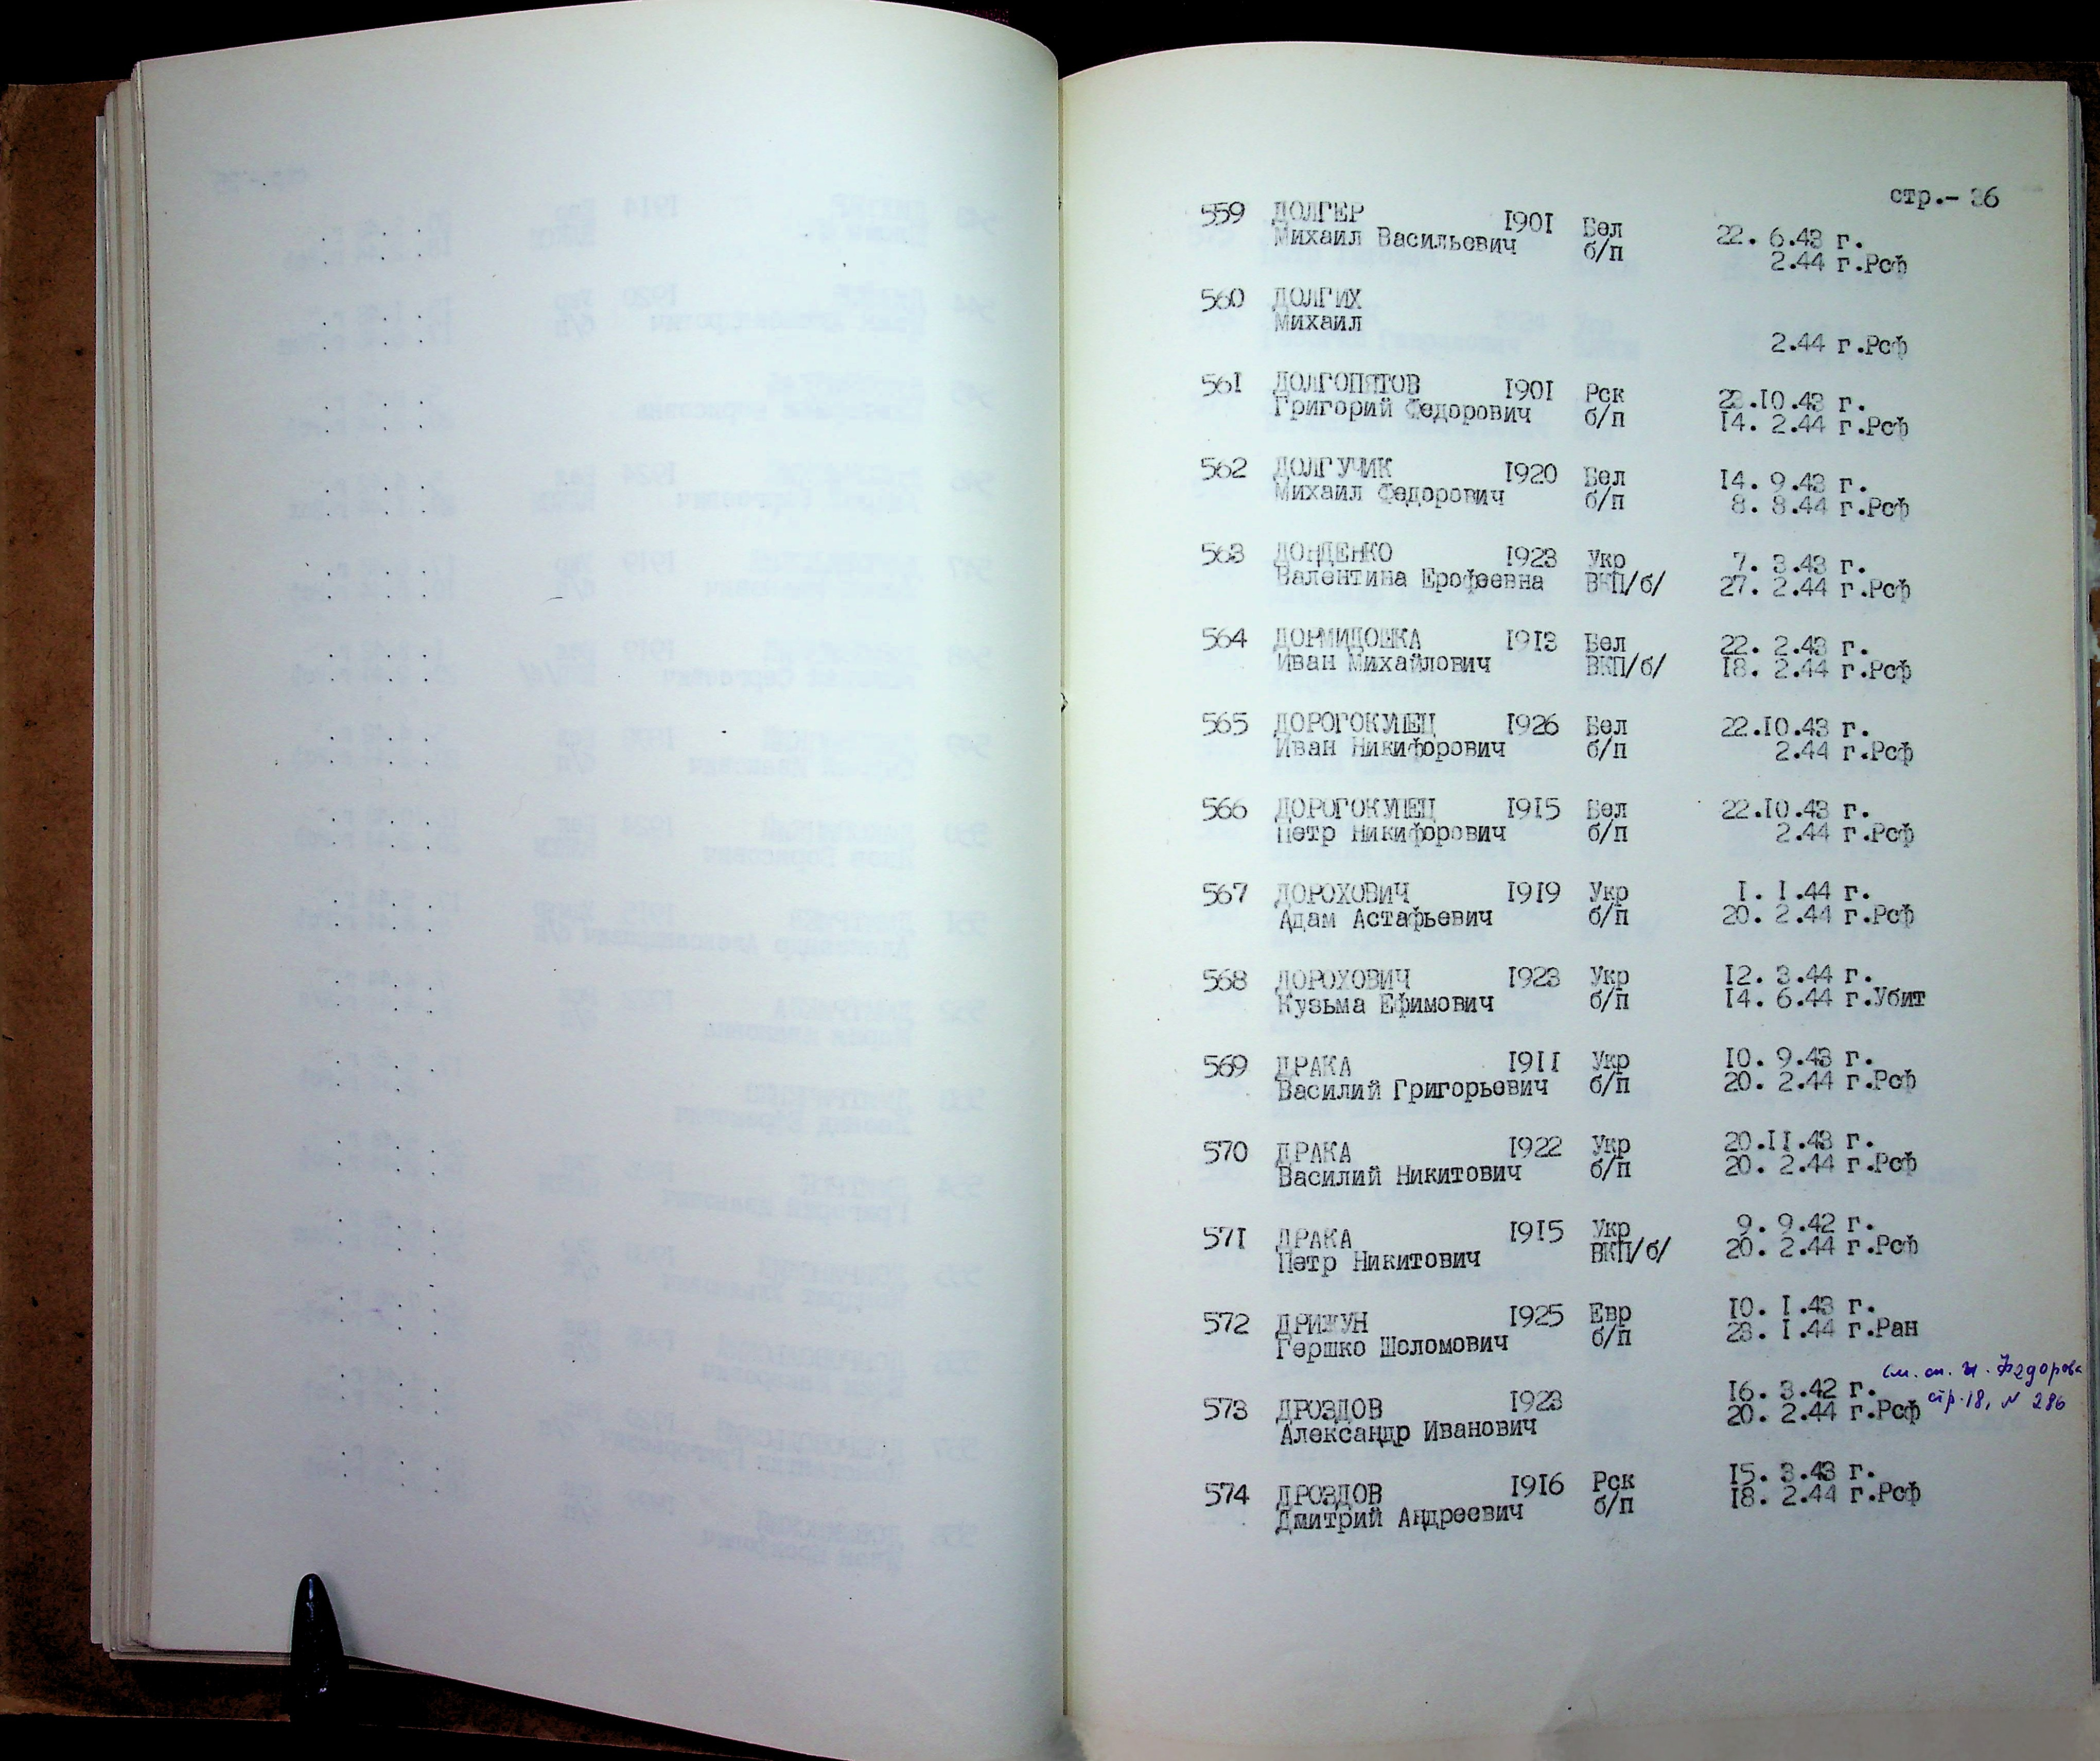 стр.- 36
559 ДОЛГЕР 1901 Бел 22. 6.43 г.
Михаил Васильевич б/п 2.44 г.Рсф
560 ДОЛГИХ
Михаил
2.44 г.Рсф
561 ДОЛГОПЯТОВ 1901 Рск 23.10.43 г.
Григорий Федорович б/п 14. 2.44 г.Рсф
562 ДОЛГУЧИК 1920 Бел 14. 9.43 г.
Михаил Федорович б/п 8. 8.44 г.Рсф
563 ДОНДЕНКО 1923 Укр 7. 3.43 г.
Валентина Ерофеевна ВКП/б/ 27. 2.44 г.Рсф
564 ДОРМИДОШКА 1913 Бел 22. 2.43 г.
Иван Михайлович ВКП/б/ 18. 2.44 г.Рсф
565 ДОРОГОКУПЕЦ 1926 Бел 22.10.43 г.
Иван Никифорович б/п 2.44 г.Рсф
566 ДОРОГОКУПЕЦ 1915 Бел 22.10.43 г.
Петр Никифорович б/п 2.44 г.Рсф
567 ДОРОХОВИЧ 1919 Укр 1. 1.44 г.
Адам Астафьевич б/п 20. 2.44 г.Рсф
568 ДОРОХОВИЧ 1923 Укр 12. 3.44 г.
Кузьма Ефимович б/п 14. 6.44 г.Убит
569 ДРАКА 1911 Укр 10. 9.43 г.
Василий Григорьевич б/п 20. 2.44 г.Рсф
570 ДРАКА 1922 Укр 20.11.43 г.
Василий Никитович б/п 20. 2.44 г.Рсф
571 ДРАКА 1915 Укр 9. 9.42 г.
Петр Никитович ВКП/б/ 20. 2.44 г.Рсф
572 ДРИЖУН 1925 Евр 10. 1.43 г.
Гершко Шоломович б/п 28. 1.44 г.Ран
573 ДРОЗДОВ 1923 16. 3.42 г.
Александр Иванович 20. 2.44 г.Рсф
см. сп. Федорова
стр. 18, N 286
574 ДРОЗДОВ 1916 Рск 15. 3.43 г.
Дмитрий Андреевич б/п 18. 2.44 г.Рсф